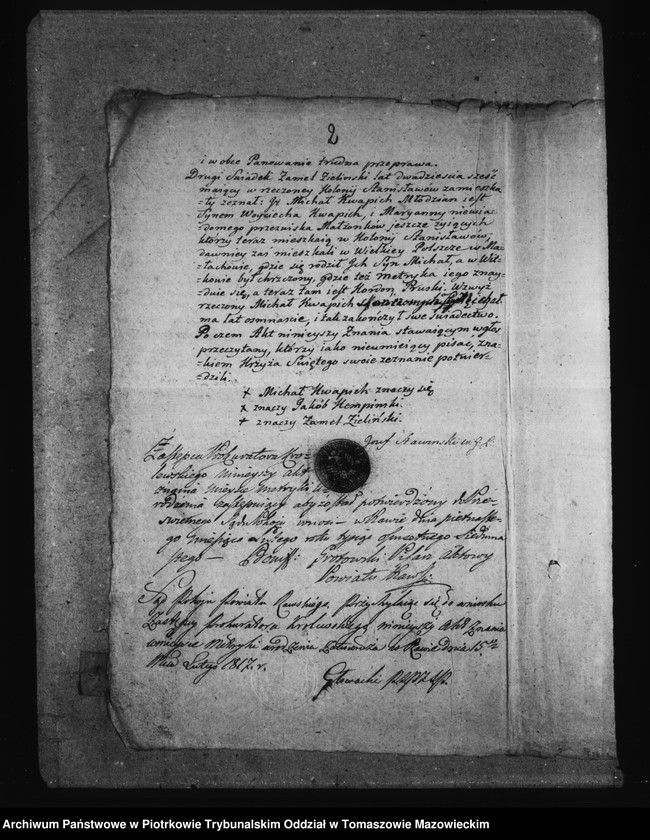 2
i w obce Panowanie trudna przeprawa.
Drugi Swiadek Zamel Zieliński lat dwadziescia sześć
maiący w rzeczoney Kolonij Stanisławów zamieszka-
=ły zeznał: Jż Michał Kwapich Młodzian iest
Synem Woyciecha Kwapich, i Maryanny niewia-
=domego przezwiska Małżonków jeszcze żyiących
którzy teraz mieszkaią w Kolonij Stanisławów,
dawniey zaś mieszkali w Wielkiey Polszcze w
=łachowie, gdzie się rodził Jch Syn Michał, a w Wit-
=kowie był chrzczony, gdzie też metryka iego znay-
=duie się, a teraz tam iest Kordon Pruski. Wzwyż
rzeczony Michał Kwapich
ma lat osmnaście, i tak zakończył swe Swiadectwo.
Po czem Akt ninieyszy Znania stawaiącym w głos
przeczytany, którzy iako nieumieiący pisać, zna-
=kiem Krzyża Swiętego swoie zeznanie potwier-
=dzili.
+ Michał Kwapich znaczy się
x znaczy Jakób Hempinski.
+ znaczy Zamel Zieliński.
Józef
Zastępca Prokuratora Kro-
lewskiego ninieyszy Akt
znania mieysce metryki u-
rodzenia zastępuiący aby został potwierdzony do Prze-
świetnego Sądu Pokoju wnosi – w Rawie dnia piętnaste-
go Miesiąca Lutego roku tysiąc ośmsetnego Siedmna-
stego –
Powiatu Rawsk:
Sąd Pokoju Powiatu Rawskiego, Przychylaiąc się do wniosku
Zastępcy Prokuratora Królewskiego ninieyszy Akt Znania
w mieysce Metryki urodzenia w Rawie dnia 15.
Lutego 1817. r.
Głowacki
Archiwum Państwowe w Piotrkowie Trybunalskim Oddział w Tomaszowie Mazowieckim